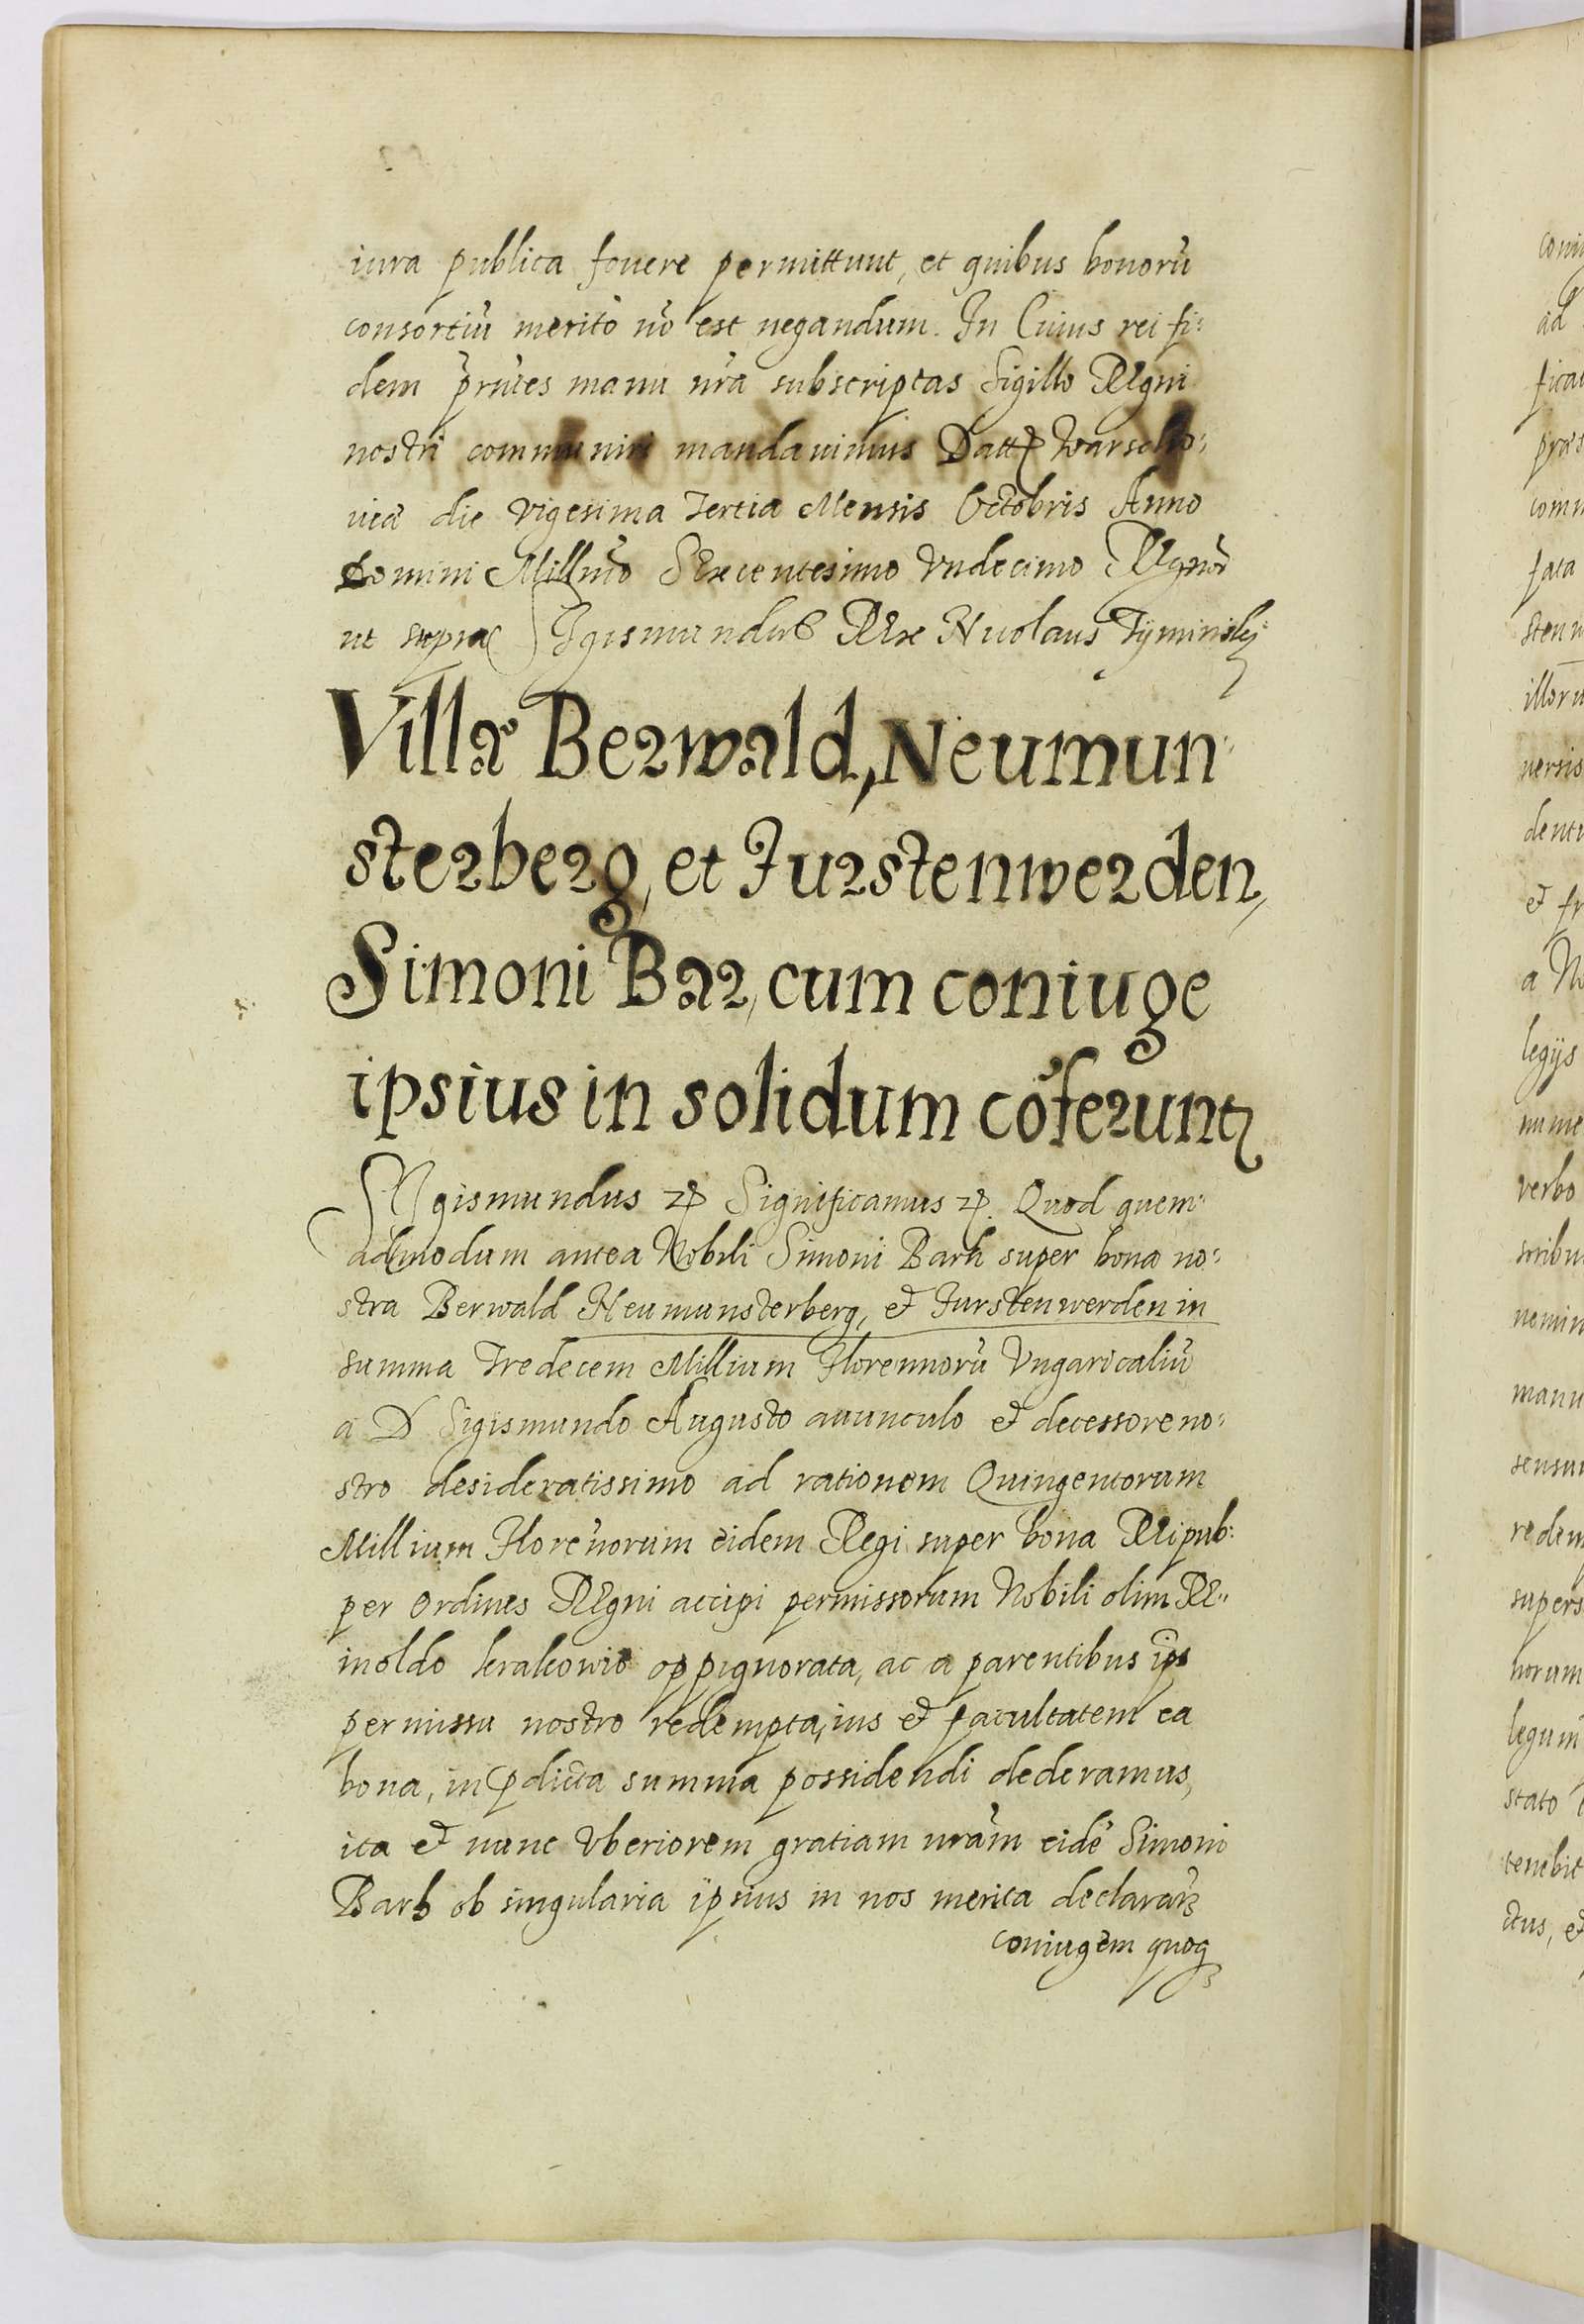 iura publica fovere permittunt, et quibus bonorũ
consortiũ merito nõ est negandum. In Cuius rei fi:
dem pr̃ntes manu nr̃a subscriptas Sigillo Regni
nostri communiri mandavimus Datt Warscho:
viæ die vigesima Tertia Mensis Octobris Anno
Domini Millmõ Sexcentesimo Undecimo Regnorũ
ut supra Sigismundus Rex Nicolaus Tyminsky
Villæ Berwald, Neumun:
sterberg, et Furstenwerden,
Simoni Bar, cum coniuge
ipsius in solidum cõferunt
Sigismundus Significamus Quod quem:
admodum antea Nobili Simoni Barh super bona no:
stra Berwald Neumunsterberg, et Furstenwerden in
summa Tredecem Millium Florennorũ Vngaricaliũ
a D Sigismundo Augusto avunculo et decessore no:
stro desideratissimo ad rationem Quingentorum
Millium Florẽnorum eidem Regi super bona Reipub:
per ordines Regni accipi permissorum Nobili olim Re:
inoldo krakowio oppignorata, ac a parentibus ips
permissu nostro redempta, ius et facultatem ea
bona, in pdicta summa possidendi dederamus,
ita et nunc Vberiorem gratiam nrãm eidẽ Simoni
Barh ob singularia ipsius in nos merita
coniugem quoq
coni
ad
ficat
præs
com
fata
sten
illoru
versis
dent
et fr
a No
legijs
nume
verbo
nomin
manu
sensu
redem
supers
norum
legum
stato
tenebit
ctus, et